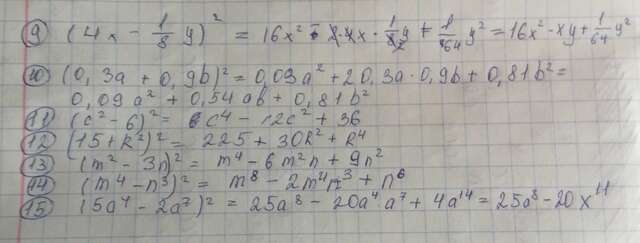 9 (4x - 1/8 y)² = 16x² - 2·4x · 1/8 y + 1/64 y² = 16x² - xy + 1/64 y²
10 (0,3a + 0,9b)² = 0,03a² + 2 0,3a · 0,9b + 0,81b² =
0,09a² + 0,54ab + 0,81b²
11 (c² - 6)² = c4 - 12c² + 36
12 (15 + k²)² = 225 + 30k² + k⁴
13 (m² - 3n)² = m⁴ - 6m²n + 9n²
14 (m⁴ - n³)² = m⁸ - 2m⁴n³ + n⁶
15 (5a⁴ - 2a⁷)² = 25a⁸ - 20a⁴ a⁷ + 4a¹⁴ = 25a⁸ - 20x¹¹